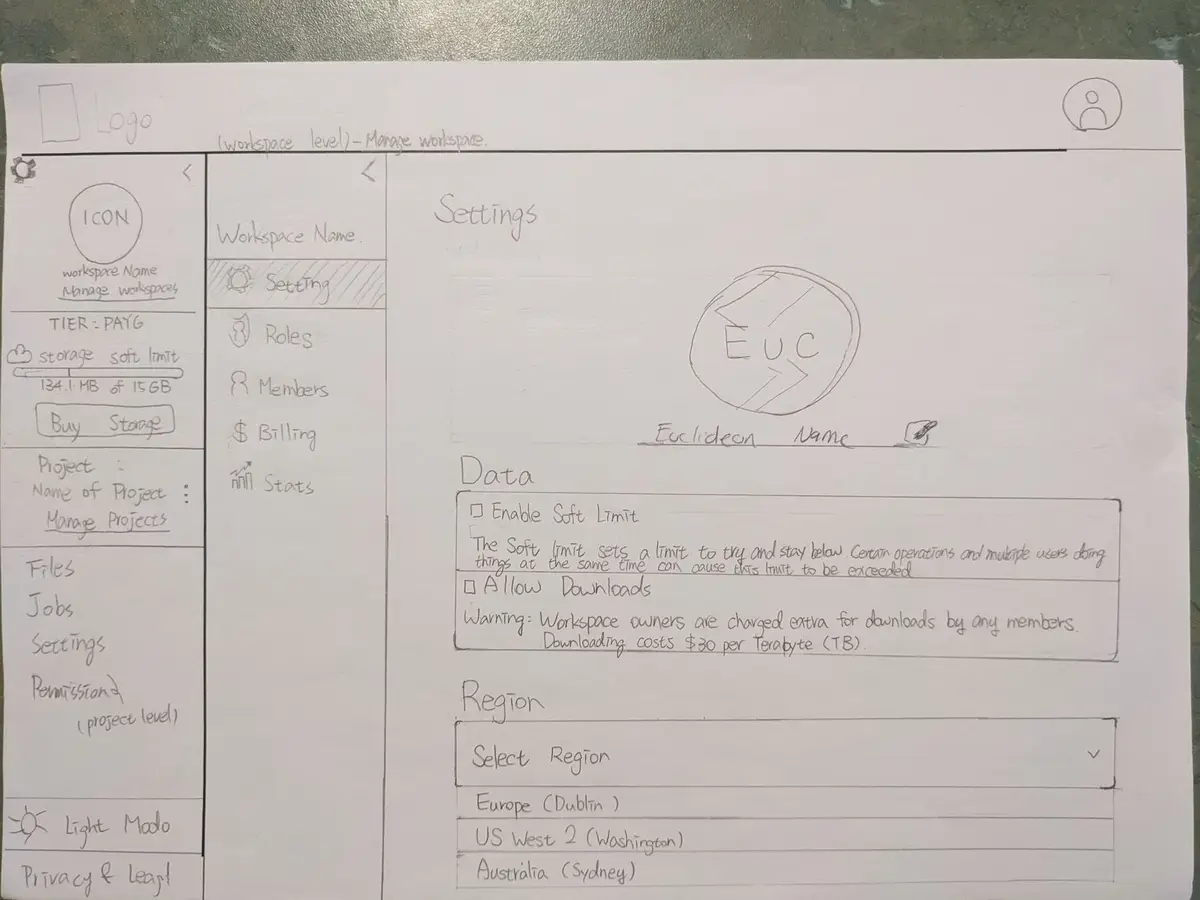 Logo
(workspace level) - Manage workspace.
ICON
workspace Name
Manage workspaces
TIER : PAYG
storage soft limit
134.1 MB of 15GB
Buy Storage
Project :
Name of Project
Manage Projects
Files
Jobs
Settings
Permission
(project level)
Light Modo
Privacy & Leagl
Workspace Name.
Setting
Roles
Members
$ Billing
Stats
Settings
EUC
Euclideon Name
Data
Enable Soft Limit
The Soft limit sets a limit to try and stay below. Certain operations and multiple users doing
things at the same time can cause this limit to be exceeded
Allow Downloads
Warning: Workspace owners are charged extra for downloads by any members.
Downloading costs $30 per Terabyte (TB).
Region
Select Region
Europe (Dublin)
US West 2 (Washington)
Australia (Sydney)